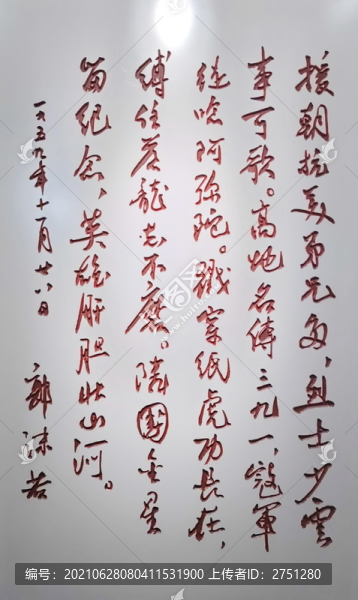 援朝抗美弟兄多，烈士少雲
事可歌。高地名傳三九一，冠軍
徒唸阿弥陀。戳穿紙虎功長在，
縛住苍龍志不磨。隣国金星
留纪念，英雄肝胆壮山河。
一九五九年十一月廿八日
郭沫若
编号：20210628080411531900 上传者ID：2751280